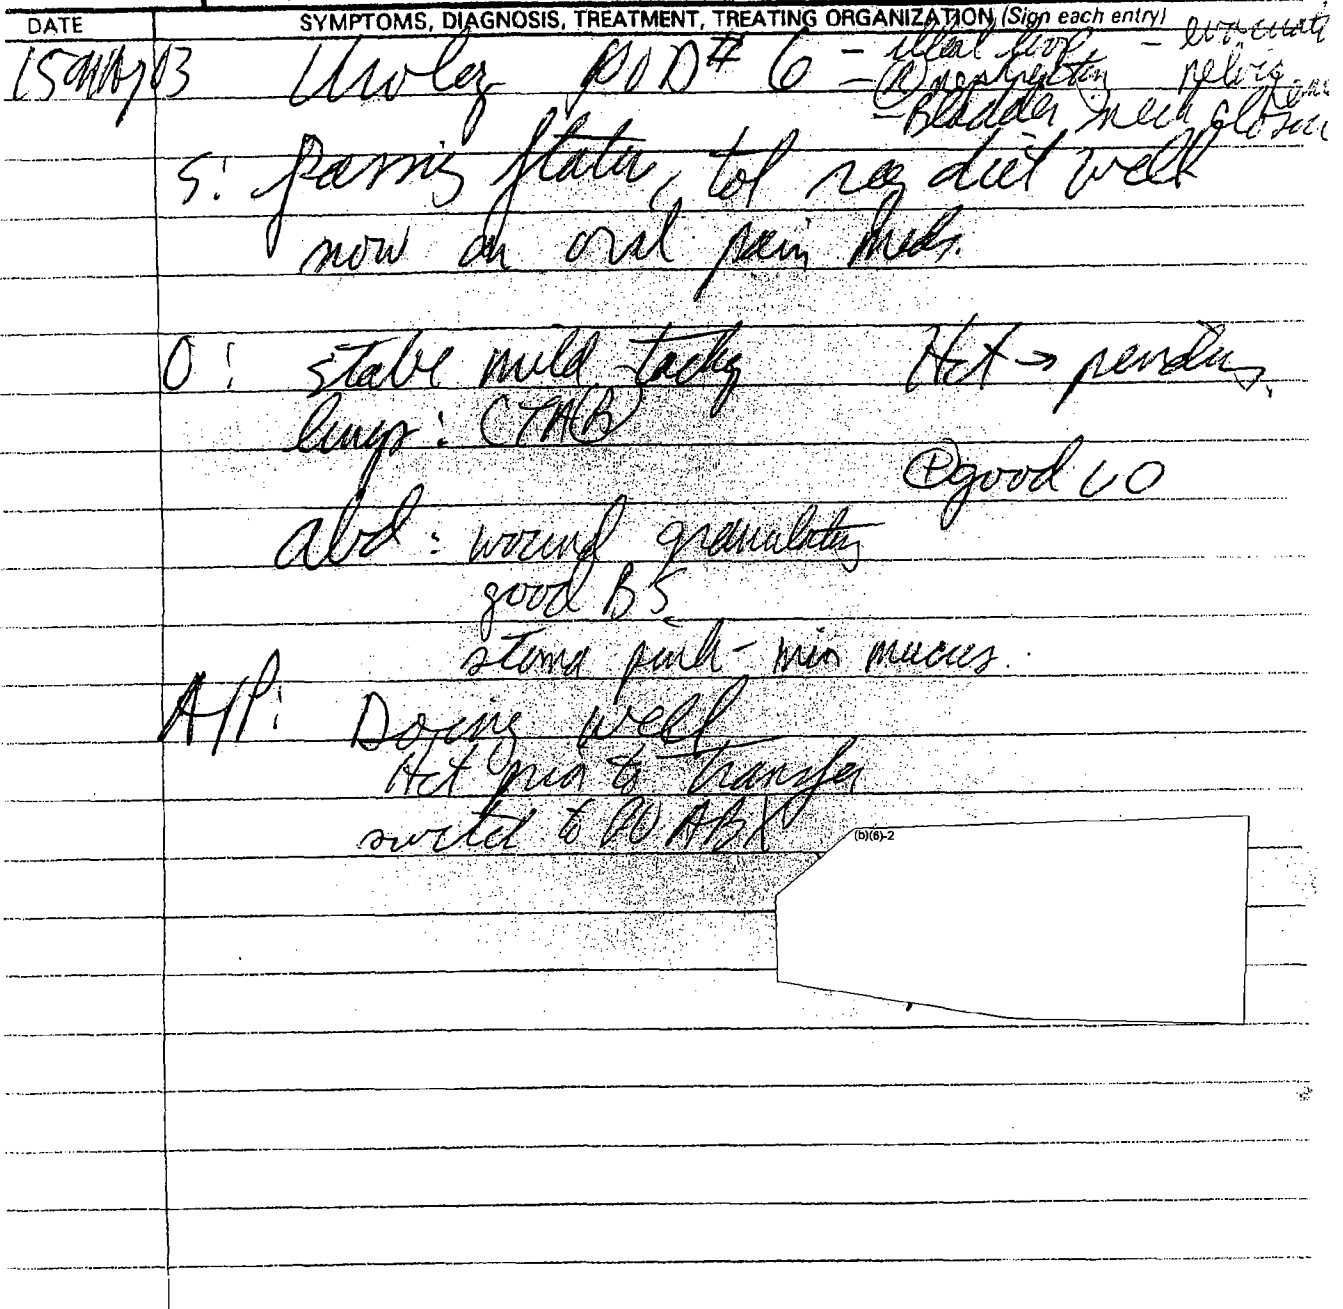 DATE SYMPTOMS, DIAGNOSIS, TREATMENT, TREATING ORGANIZATION (Sign each entry)
15 May 03 Urology POD # 6 - ileal loop - evacuati
- nephrectomy pelvic
- Bladder neck closure
S: passing flatus, tol reg diet well
now on oral pain meds.
O: stable mild tachy Hct → pending.
lungs: CTAB
⊕ good UO
abd: wound granulating
good BS
stoma pink - min mucus.
A/P: Doing well
Hct prior to transfer
switch to PO ABX
(b)(6)-2